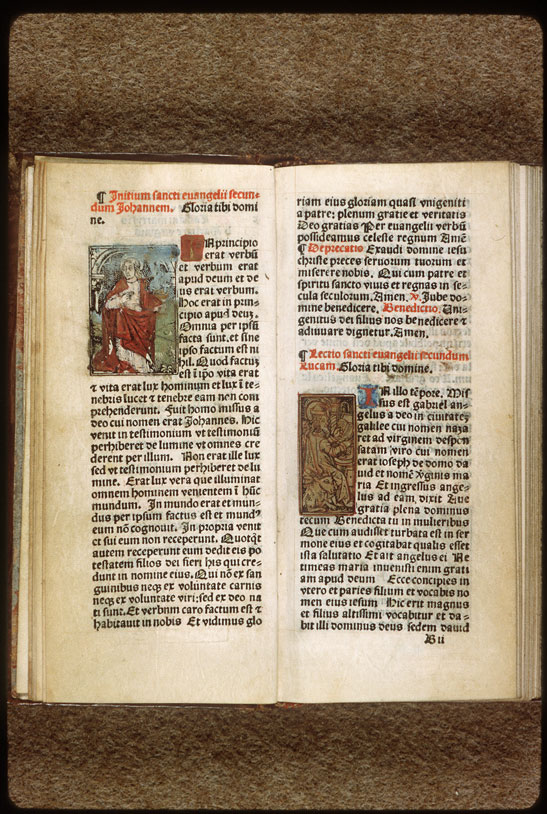 ¶ Initium sancti euangelii secun-
dum Johannem. Gloria tibi domi
ne.
IN principio
erat verbū
et verbum erat
apud deum et de
us erat verbum.
Hoc erat in prin-
cipio apud deuz.
Omnia per ipsū
facta sunt, et sine
ipso factum est ni
hil. Quod factuz
est ī ipo vita erat
⁊ vita erat lux hominum et lux ī te-
nebris lucet ⁊ tenebre eam non com
prehenderunt. Fuit homo missus a
deo cui nomen erat Johannes. Hic
venit in testimonium vt testimoniū
perhiberet de lumine vt omnes cre
derent per illum. Non erat ille lux
sed vt testimonium perhiberet de lu
mine. Erat lux vera que illuminat
omnem hominem venientem ī hūc
mundum. In mundo erat et mun-
dus per ipsum factus est et mundꝰ
eum nō cognouit. In propria venit
et sui eum non receperunt. Quotqͦt
autem receperunt eum dedit eis po
testatem filios dei fieri his qui cre-
dunt in nomine eius. Qui nō ex san
guinibus neqꝫ ex voluntate carnis
neqꝫ ex voluntate viri; sed ex deo na
ti sunt. Et verbum caro factum est ⁊
habitauit in nobis Et vidimus glo
riam eius gloriam quasi vnigeniti
a patre; plenum gratie et veritatis
Deo gratias Per euangelii verbū
possideamus celeste regnum Amē
¶ Deprecatio Exaudi domine iesu
christe preces seruorum tuorum et
miserere nobis. Qui cum patre et
spiritu sancto viuis et regnas in se-
cula seculorum. Amen. ℣. Jube do-
mine benedicere. Benedictio. Uni-
genitus dei filius nos benedicere ⁊
adiuuare dignetur. Amen.
¶ Lectio sancti euangelii secundum
Lucam. Gloria tibi domine.
IN illo tēpore. Mis
sus est gabriel an-
gelus a deo in ciuitatez
galilee cui nomen naza
ret ad virginem despon
satam viro cui nomen
erat ioseph de domo da
uid et nomē v̉ginis ma
ria Et ingressus ange-
lus ad eam, dixit Aue
gratia plena dominus
tecum Benedicta tu in mulieribus
Que cum audisset turbata est in ser
mone eius et cogitabat qualis esset
ista salutatio Et ait angelus ei Ne
timeas maria inuenisti enim grati
am apud deum Ecce concipies in
vtero et paries filium et vocabis no
men eius iesum Hic erit magnus
et filius altissimi vocabitur et da-
bit illi dominus deus sedem dauid
B ii